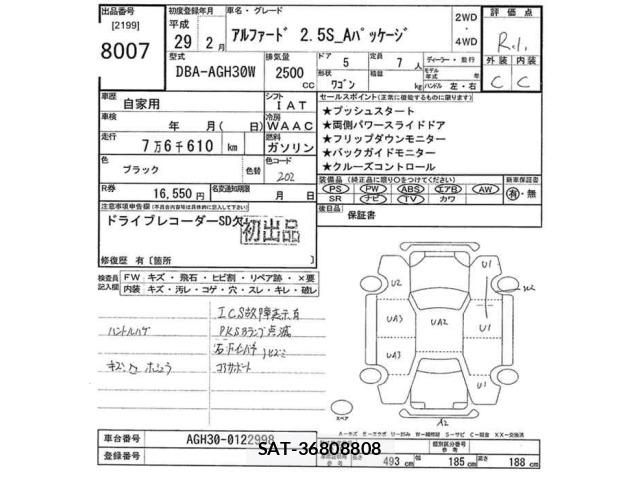 出品番号
[2199]
8007
初度登録年月
平成
29 2月
車名・グレード
アルファード 2.5S_Aパッケージ
2WD
・
4WD
評価点
R.1.
外装 内装
C C
型式
DBA-AGH30W
排気量
2500 cc
ドア
5
形状
ワゴン
定員
7 人
積量
kg
ディーラー・並行
モデル年式 年
ハンドル 左・右
車歴
自家用
シフト
IAT
車検
年 月(日)
冷房
WAAC
走行
7万6千610 km
燃料
ガソリン
色
ブラック
色替
色コード
202
R券
16,550円
名変通知期限
月 日
セールスポイント(正常に機能するものに限ります)
★プッシュスタート
★両側パワースライドドア
★フリップダウンモニター
★バックガイドモニター
★クルーズコントロール
装備品(純正品に限り○をつけてください)
PS PW ABS エアB AW
SR ナビ TV カワ
新車保証書
有・無
後日品 保証書
注意事項申告欄(不具合内容等は具体的に記入して下さい)
ドライブレコーダーSD欠
初出品
修復歴 有〔箇所 〕
検査員記入欄
FW キズ・飛石・ヒビ割・リペア跡・×要
内装 キズ・汚レ・コゲ・穴・スレ・キレ・破レ
ICS故障表示有
ハンドルハゲ
PKSBランプ点滅
U2
U1
UA3
UA2
U1
UA3
U1
A2
スペア
車台番号
AGH30-0122998
登録番号
SAT-36808808
長さ 493 cm 幅 185 cm 高さ 188 cm